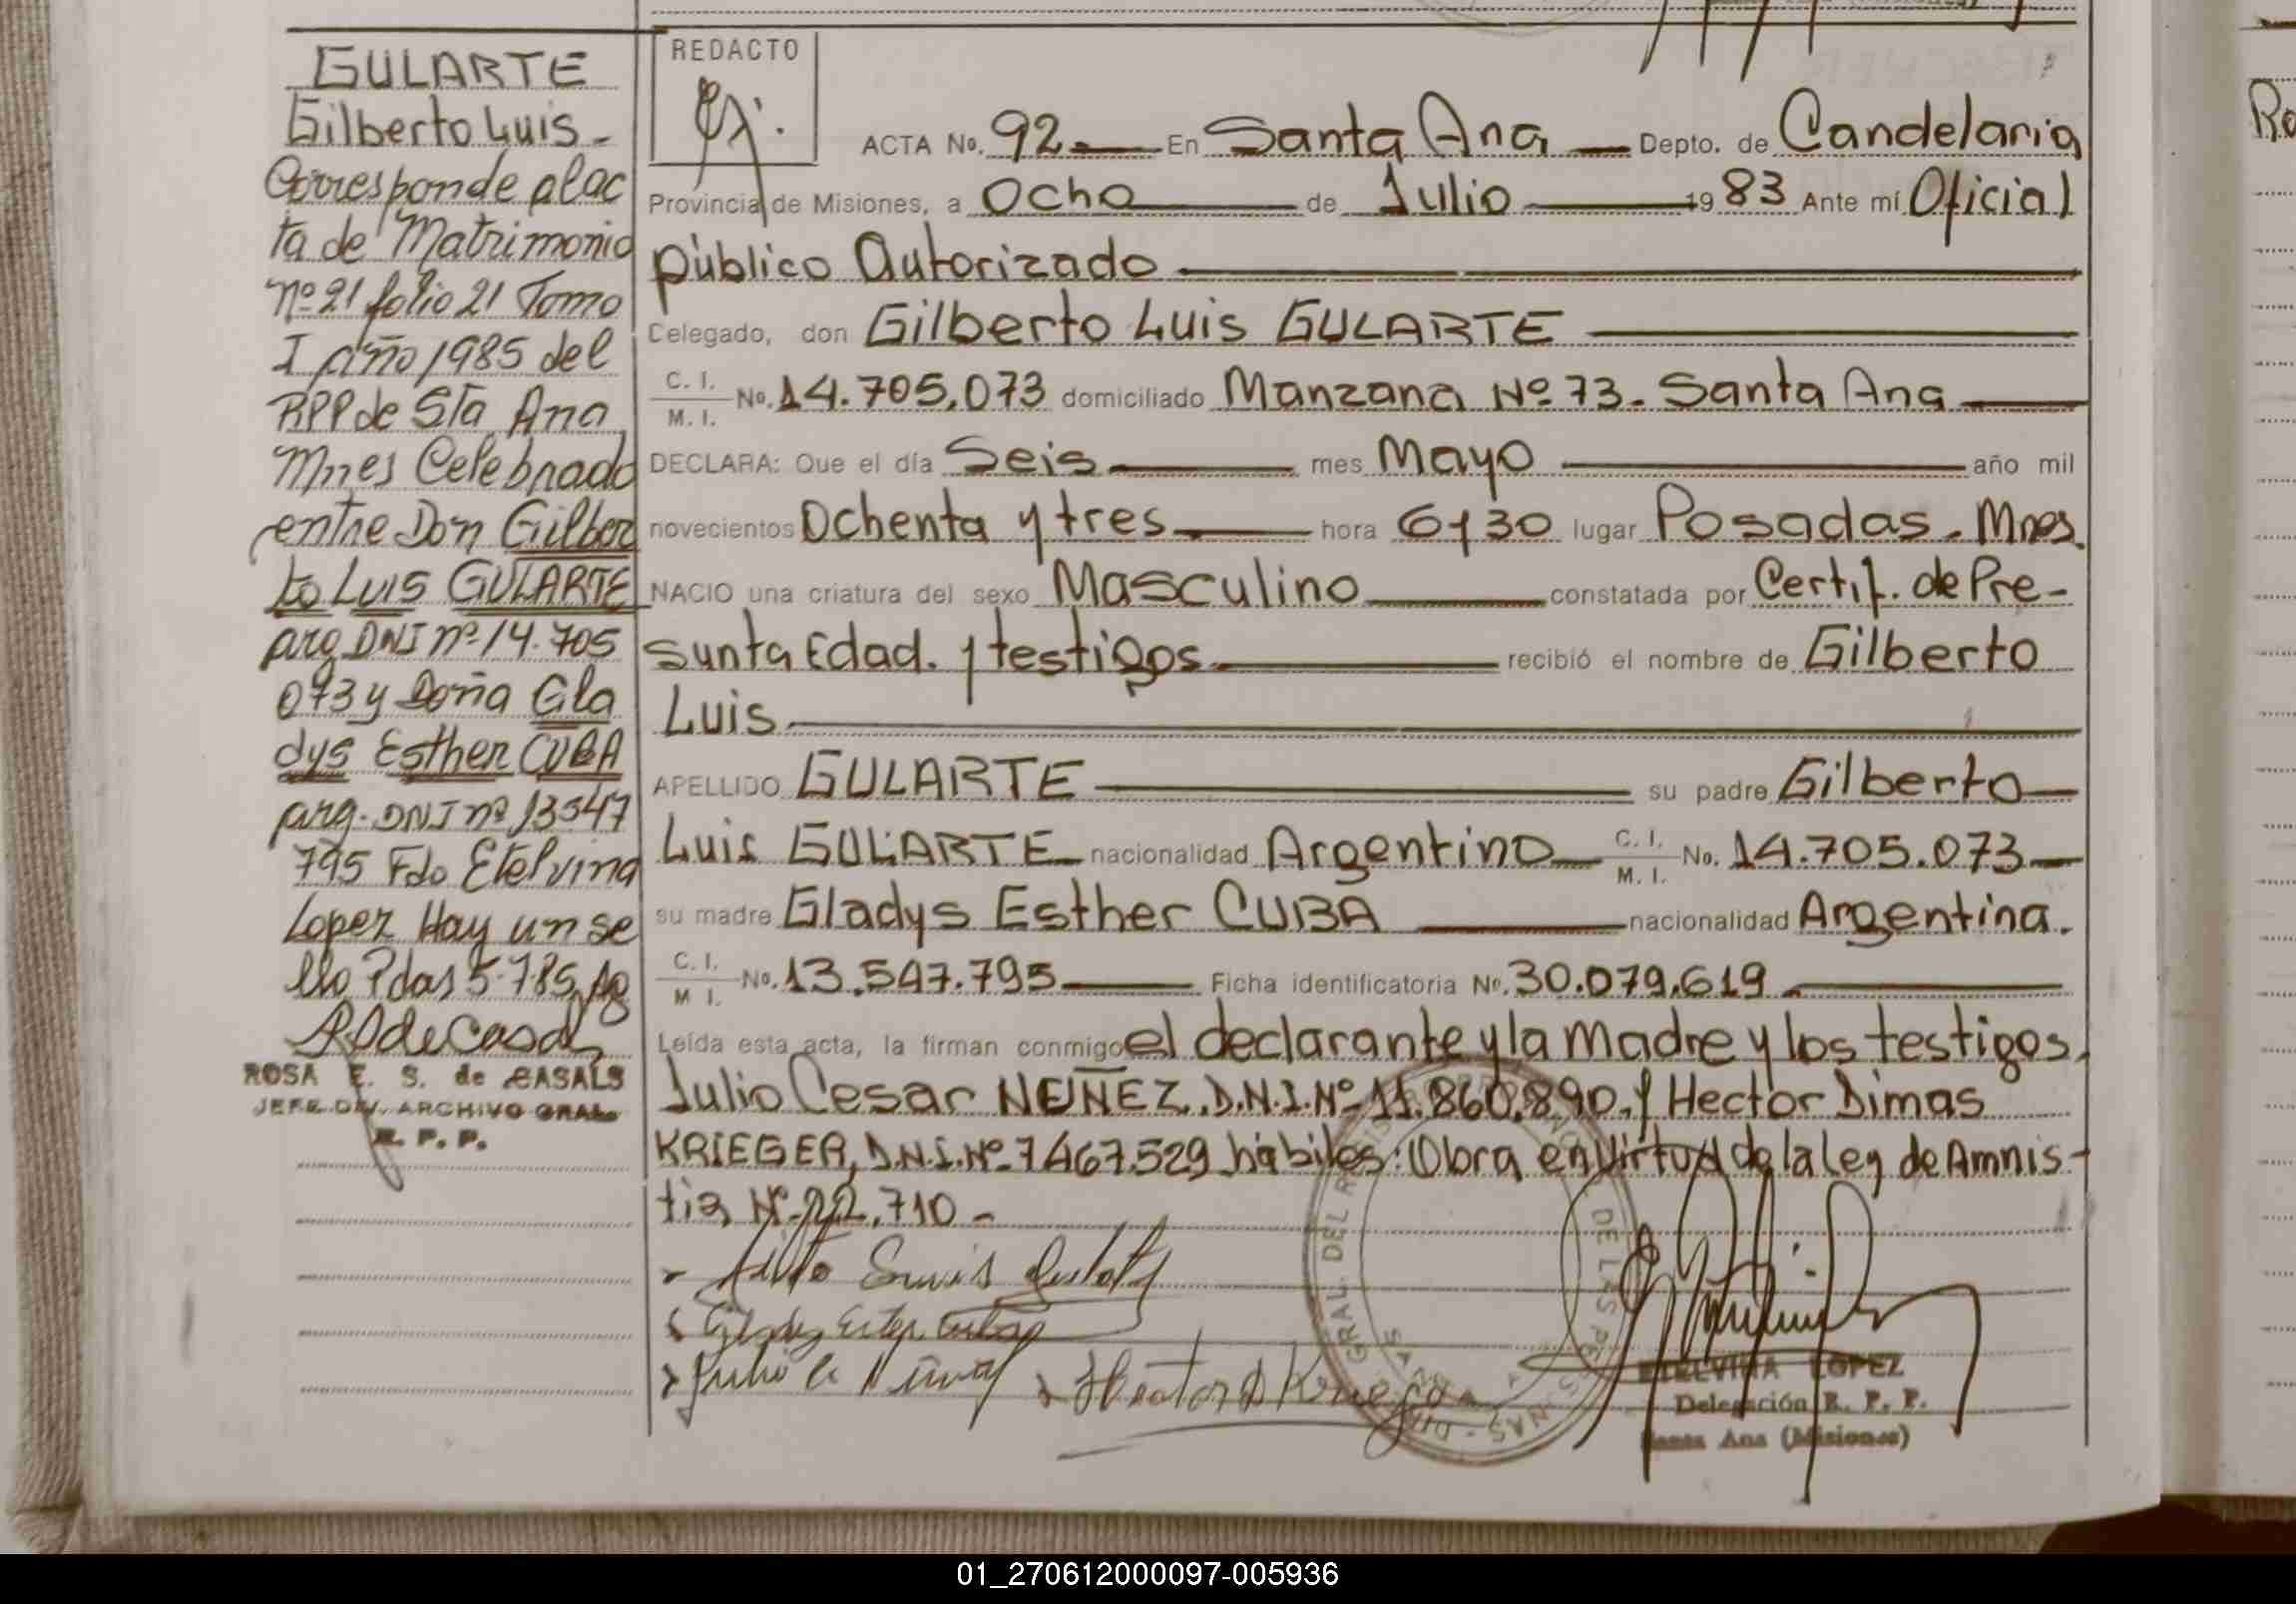 GULARTE
Gilberto Luis-
Corresponde al ac
ta de Matrimonio
nº 21 folio 21 Tomo
I año 1985 del
RPP de Sta Ana
Mnes Celebrado
entre Don Gilber
to Luis GULARTE
arg DNI nº 14.705
073 y Doña Gla
dys Esther CUBA
arg. DNI nº 13547
795 Fdo Etelvina
Lopez Hay un se
llo Pdas 5-7-85
ROSA E. S. de CASALS
JEFE DIV. ARCHIVO GRAL.
R. P. P.
REDACTO
ACTA No. 92 En Santa Ana Depto. de Candelaria
Provincia de Misiones, a Ocho de Julio 1983 Ante mí Oficial
público Autorizado
Celegado, don Gilberto Luis GULARTE
C. I. M. I. No. 14.705.073 domiciliado Manzana Nº 73. Santa Ana
DECLARA: Que el día Seis mes Mayo año mil
novecientos Ochenta y tres hora 6,30 lugar Posadas. Mnes.
NACIO una criatura del sexo Masculino constatada por Certif. de Pre-
sunta Edad. y testigos recibió el nombre de Gilberto
Luis
APELLIDO GULARTE su padre Gilberto
Luis GULARTE nacionalidad Argentino C. I. M. I. No. 14.705.073
su madre Gladys Esther CUBA nacionalidad Argentina.
C. I. M I. No. 13.547.795 Ficha identificatoria Nº. 30.079.619
Leída esta acta, la firman conmigo el declarante y la Madre y los testigos.
Julio Cesar NEÑEZ. D.N.I.Nº 11.860.890. y Hector Dimas
KRIEGER, D.N.I.Nº 7467.529 hábiles: Obra en Virtud de la ley de Amnis-
tia Nº 22.710 -
Hector D Krieger
ETELVINA LOPEZ
Delegación R. P. P.
Santa Ana (Misiones)
01_270612000097-005936